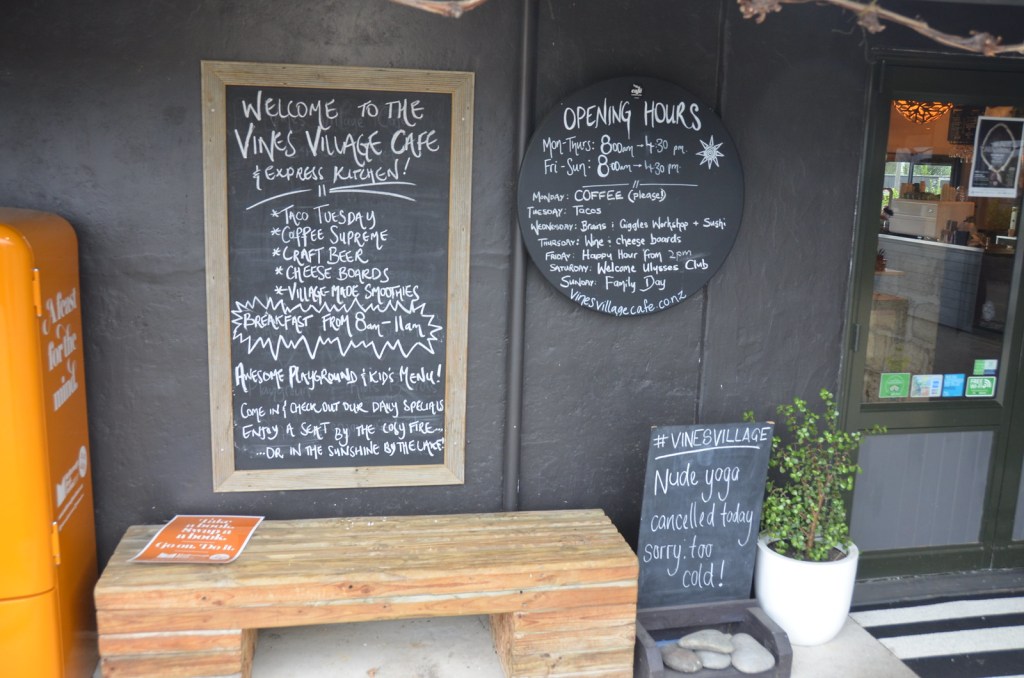 WELCOME TO THE
VINES VILLAGE CAFE
& EXPRESS KITCHEN!
*TACO TUESDAY
*COFFEE SUPREME
*CRAFT BEER
*CHEESE BOARDS
*VILLAGE-MADE SMOOTHIES
BREAKFAST FROM 8am-11am
AWESOME PLAYGROUND & KID'S MENU!
COME IN & CHECK OUT OUR DAILY SPECIALS
ENJOY A SEAT BY THE COSY FIRE...
...OR IN THE SUNSHINE BY THE LAKE!
OPENING HOURS
Mon-Thurs: 8:00am → 4:30 pm.
Fri-Sun: 8:00am → 4:30 pm.
MONDAY: COFFEE (please!)
TUESDAY: Tacos
WEDNESDAY: Brains & Giggles Workshop + Sushi
THURSDAY: Wine & cheese boards
FRIDAY: Happy Hour from 2pm
SATURDAY: Welcome Ulysses Club
SUNDAY: Family Day
vinesvillagecafe.co.nz
#VINESVILLAGE
Nude yoga
cancelled today
sorry: too
cold!
A feast
for the
mind.
Take
a book.
Swap a
book.
Go on. Do it.